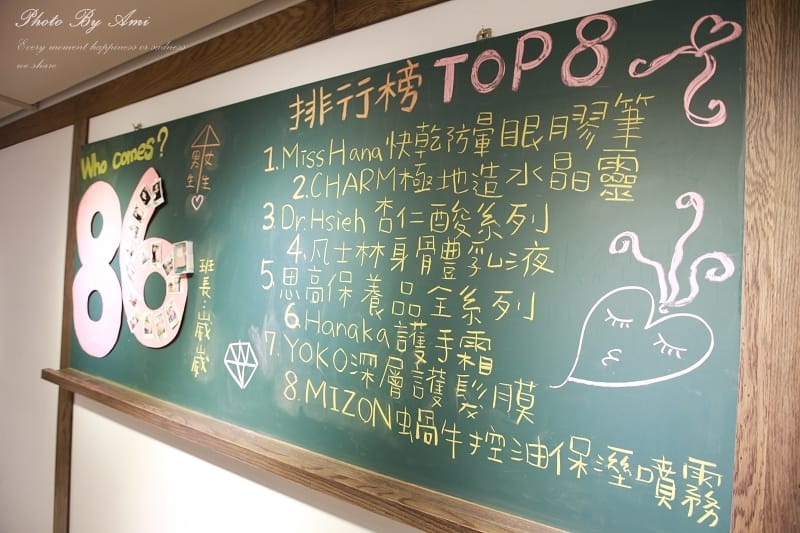 Photo By Ami
Every moment happiness or sadness
we share
排行榜 TOP 8
Who comes?
86
男生
女生
班長：崴崴
1. Miss Hana 快乾防暈眼膠筆
2. CHARM極地造水晶靈
3. Dr. Hsieh 杏仁酸系列
4. 凡士林身體乳液
5. 思高保養品全系列
6. Hanaka 護手霜
7. YOKO深層護髮膜
8. MIZON蝸牛控油保溼噴霧